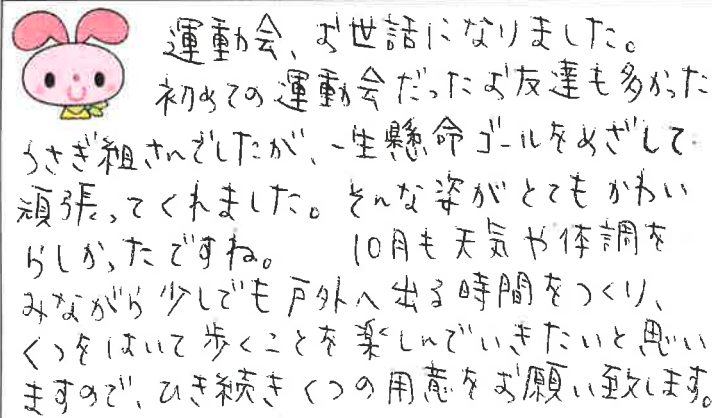 運動会、お世話になりました。
初めての運動会だったお友達も多かった
うさぎ組さんでしたが、一生懸命ゴールをめざして
頑張ってくれました。そんな姿がとてもかわい
らしかったですね。　10月も天気や体調を
みながら少しでも戸外へ出る時間をつくり、
くつをはいて歩くことを楽しんでいきたいと思い
ますので、ひき続きくつの用意をお願い致します。